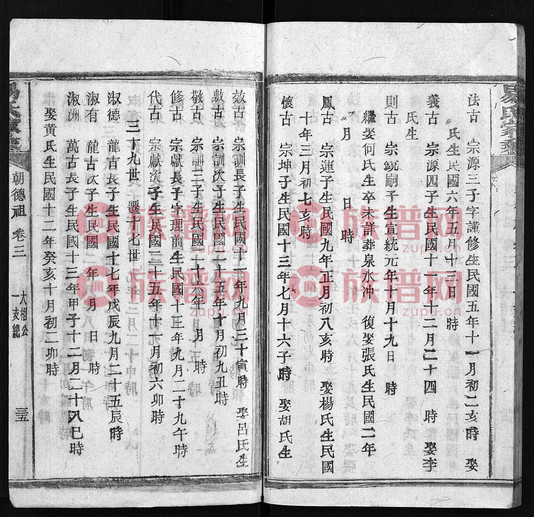 法古 宗源三子字謹修生民國五年十一月初二亥時 娶
氏生民國六年五月十三日 時
義古 宗源四子生民國十一年十二月二十四 時 娶李
氏生
則古 宗統嗣子生宣統元年十月十九日 時
繼娶何氏生卒未詳葬泉水沖 後娶張氏生民國二年
月 日 時
鳳古 宗蓮子生民國九年正月初八亥時 娶楊氏生民國
十年三月初七亥時
懷古 宗坤子生民國十三年七月十六子時 娶胡氏生
效古 宗訓長子生民國十一年九月三十寅時 娶呂氏生
數古 宗訓次子生民國十五年十月初九丑時
敬古 宗訓三子生民國十六年 月 時
修古 宗獻長子文理前生民國十三年九月二十九午時
代古 宗獻次子生民國二十五年十月初六卯時
三十九世 遷十七世
淑德 龍古長子生民國十七年戊辰九月二十五辰時
淑有 龍古次子生民國 年 月 日 時
淑洲 萬古長子生民國十三年甲子十二月二十八巳時
娶黃氏生民國十二年癸亥十月初二卯時
朝德祖 卷三
一支總
族谱网
zupu.cn